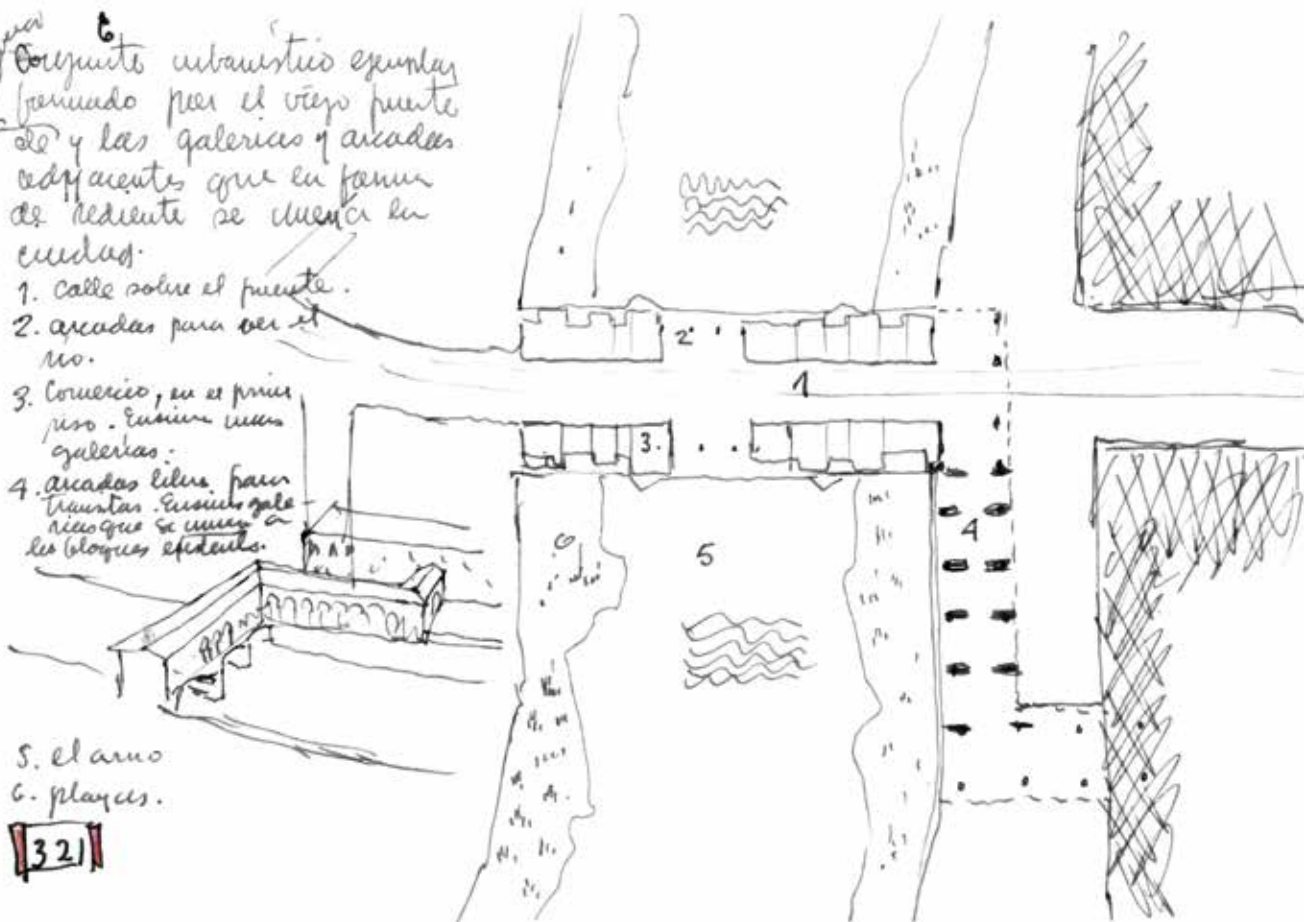 Conjunto urbanístico ejemplar
formado por el viejo puente
y las galerias y arcadas
adyacentes que en forma
de rediente se a la
ciudad.
1. Calle sobre el puente.
2. arcadas para ver el
rio.
3. Comercio, en el primer
piso. Encima unas
galerías.
4. arcadas libres para
transitar. Encima gale
rias que se unen a
los bloques
5. el arno
6. playas.
321
2
1
3.
4
5
6